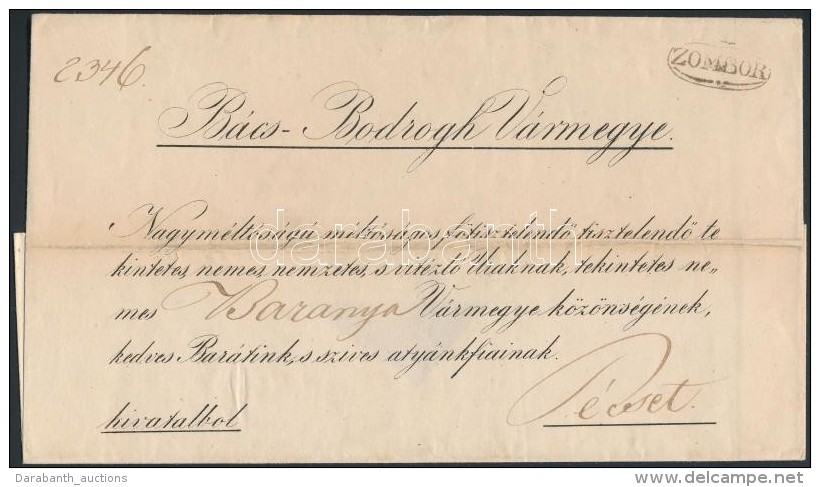 2346.
ZOMBOR
Bács-Bodrogh Vármegye.
Nagyméltóságú méltóságos, főtisztelendő tisztelendő te
kintetes, nemes, nemzetes, s vitézlő Uraknak, tekintetes ne„
mes Baranya Vármegye közönségének,
kedves Barátink, s szives atyánkfiainak.
hivatalbol
Pécset.
darabanth
Darabanth_auctions
delcampe.net